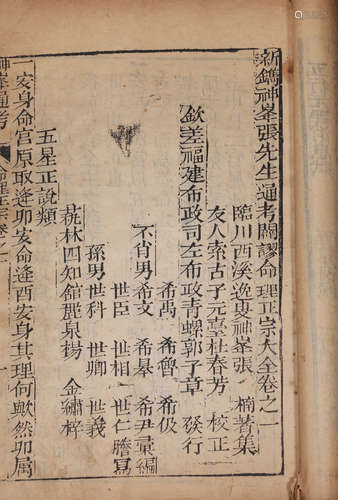 新鐫神峯張先生通考闢謬命理正宗大全卷之一
臨川西溪逸叟神峯張 楠著集
友人索古子元臺杜春芳 校正
欽差福建布政司左布政青螺郭子章 發行
希禹 希魯 希伋
不肖男希文 希皋 希尹彙編
世臣 世相 世仁謄寫
孫男世科 世卿 世義
蓺林四知館麗泉楊 金繡梓
五星正說類
一安身命宮原取逢卯安命逢酉安身其理何歟然卯属
神峯通考 命理正宗卷之一 一